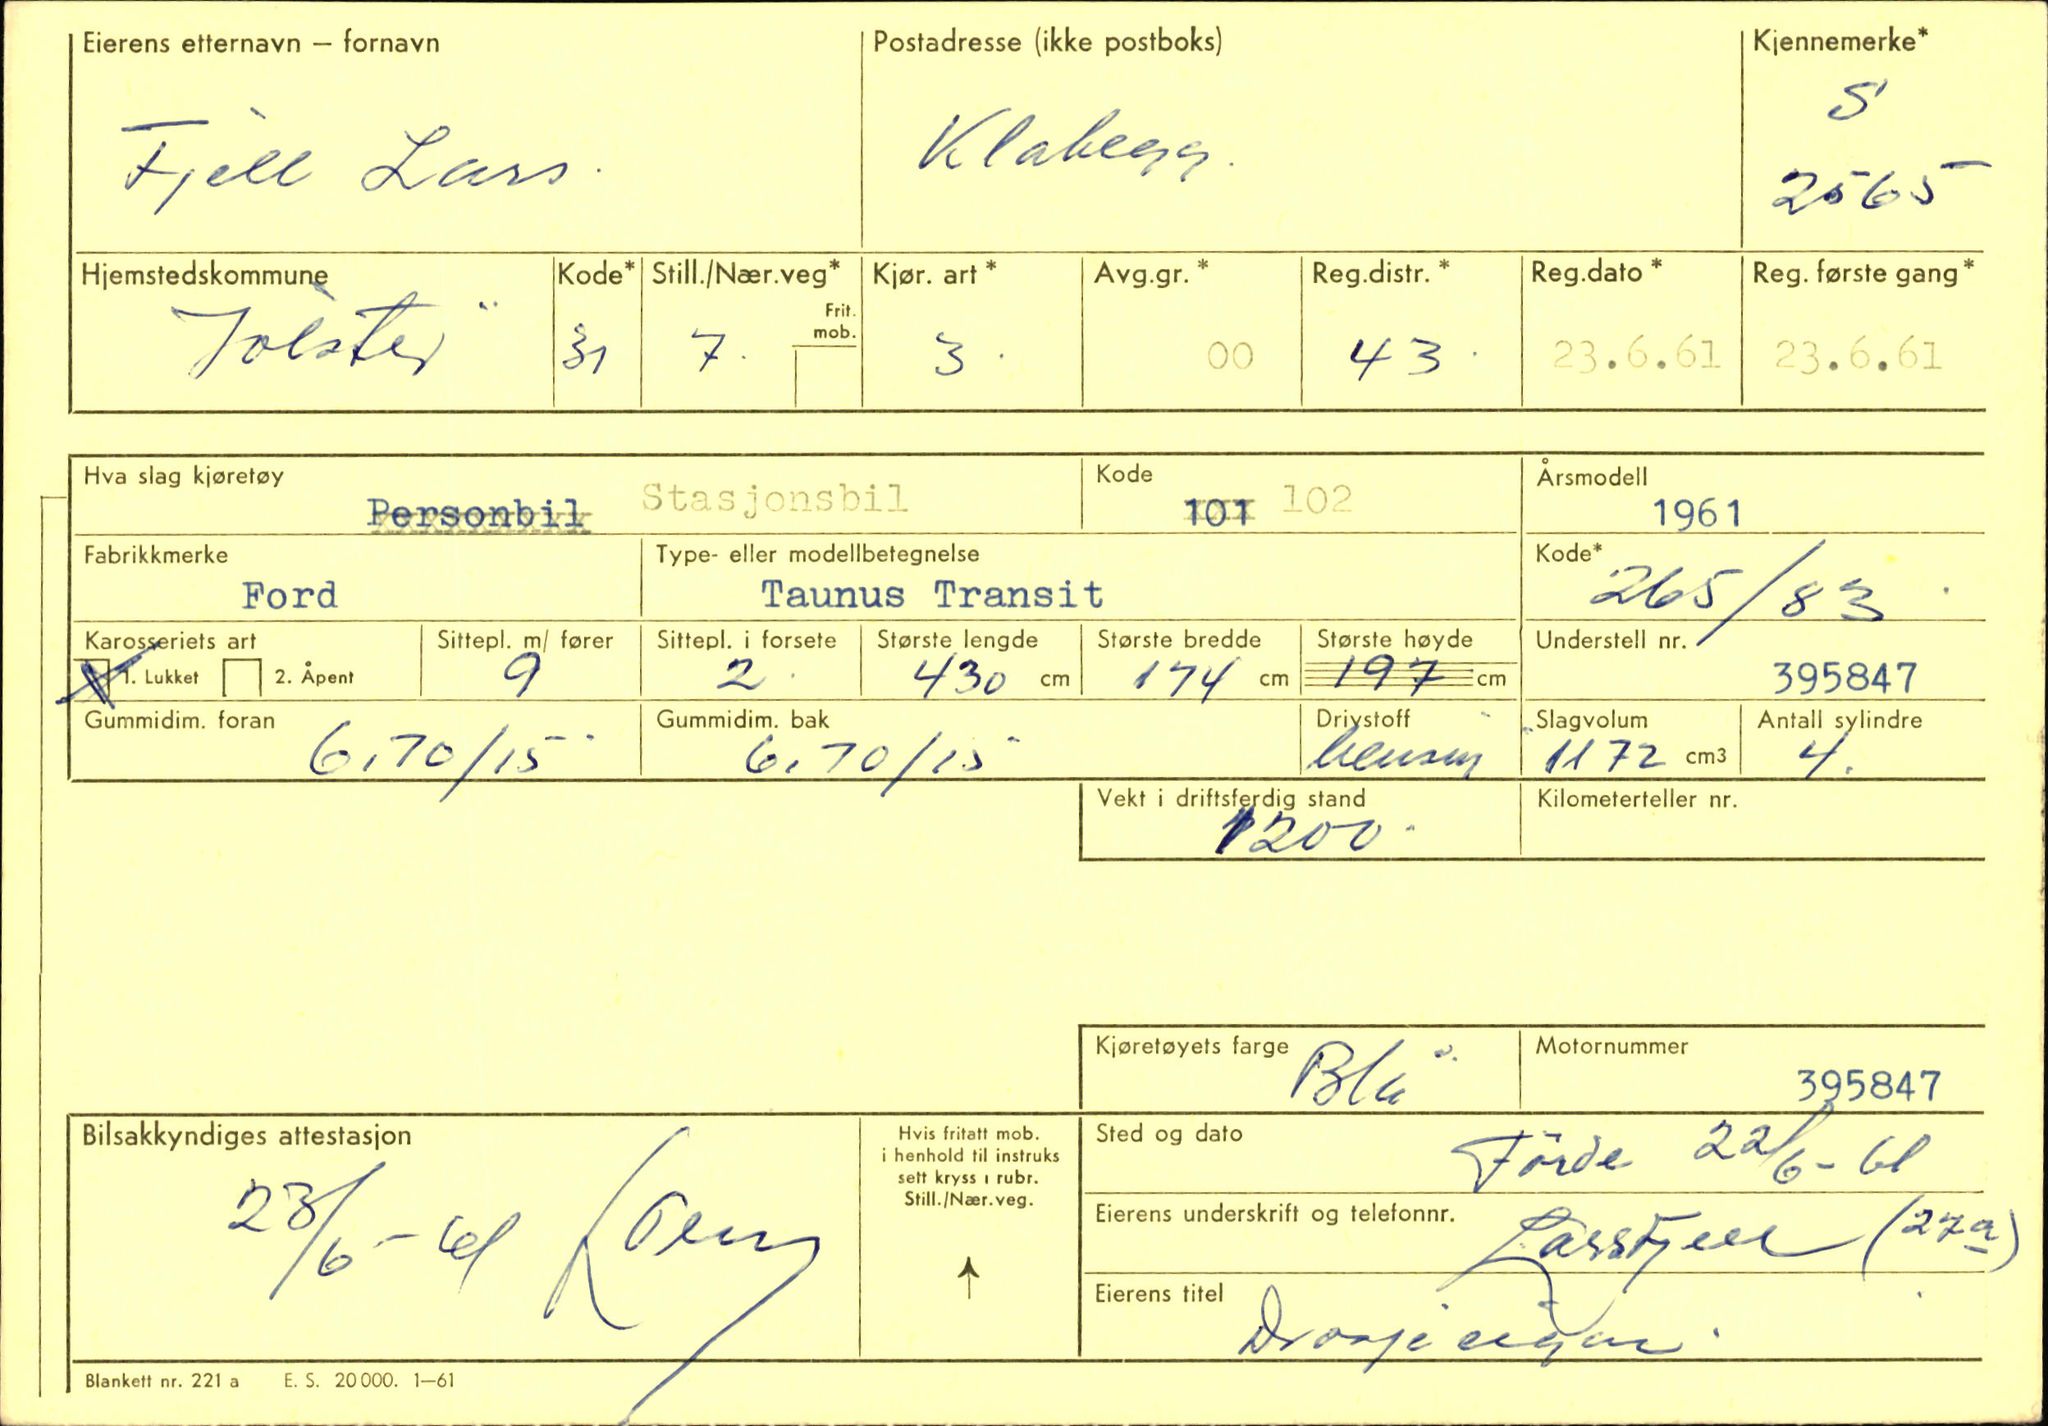 Eierens etternavn – fornavn Postadresse (ikke postboks) Kjennemerke*
Fjell Lars. Klakegg. S
2565
Hjemstedskommune Kode* Still./Nær.veg* Kjør. art* Avg.gr.* Reg.distr.* Reg.dato* Reg. første gang*
Frit. mob.
Jölster 31 7. 3. 00 43. 23.6.61 23.6.61
Hva slag kjøretøy Kode Årsmodell
Personbil Stasjonsbil 101 102 1961
Fabrikkmerke Type- eller modellbetegnelse Kode*
Ford Taunus Transit 265/83
Karosseriets art Sittepl. m/ fører Sittepl. i forsete Største lengde Største bredde Største høyde Understell nr.
X 1. Lukket 2. Åpent 9 2. 430 cm 174 cm 197 cm 395847
Gummidim. foran Gummidim. bak Drivstoff Slagvolum Antall sylindre
6,70/15 6,70/15 bensin 1172 cm3 4.
Vekt i driftsferdig stand Kilometerteller nr.
1200
Kjøretøyets farge Motornummer
Blå 395847
Bilsakkyndiges attestasjon Hvis fritatt mob. Sted og dato
i henhold til instruks
sett kryss i rubr.
Still./Nær.veg.
Förde 22/6-61
23/6-61
Eierens underskrift og telefonnr.
Lars Fjell (27a)
Eierens titel
Drosjeeigar.
Blankett nr. 221 a E. S. 20 000. 1–61